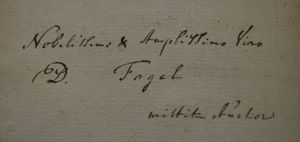 Nobilissimo & Amplissimo Viro
D. Fagel
mittit Auctor